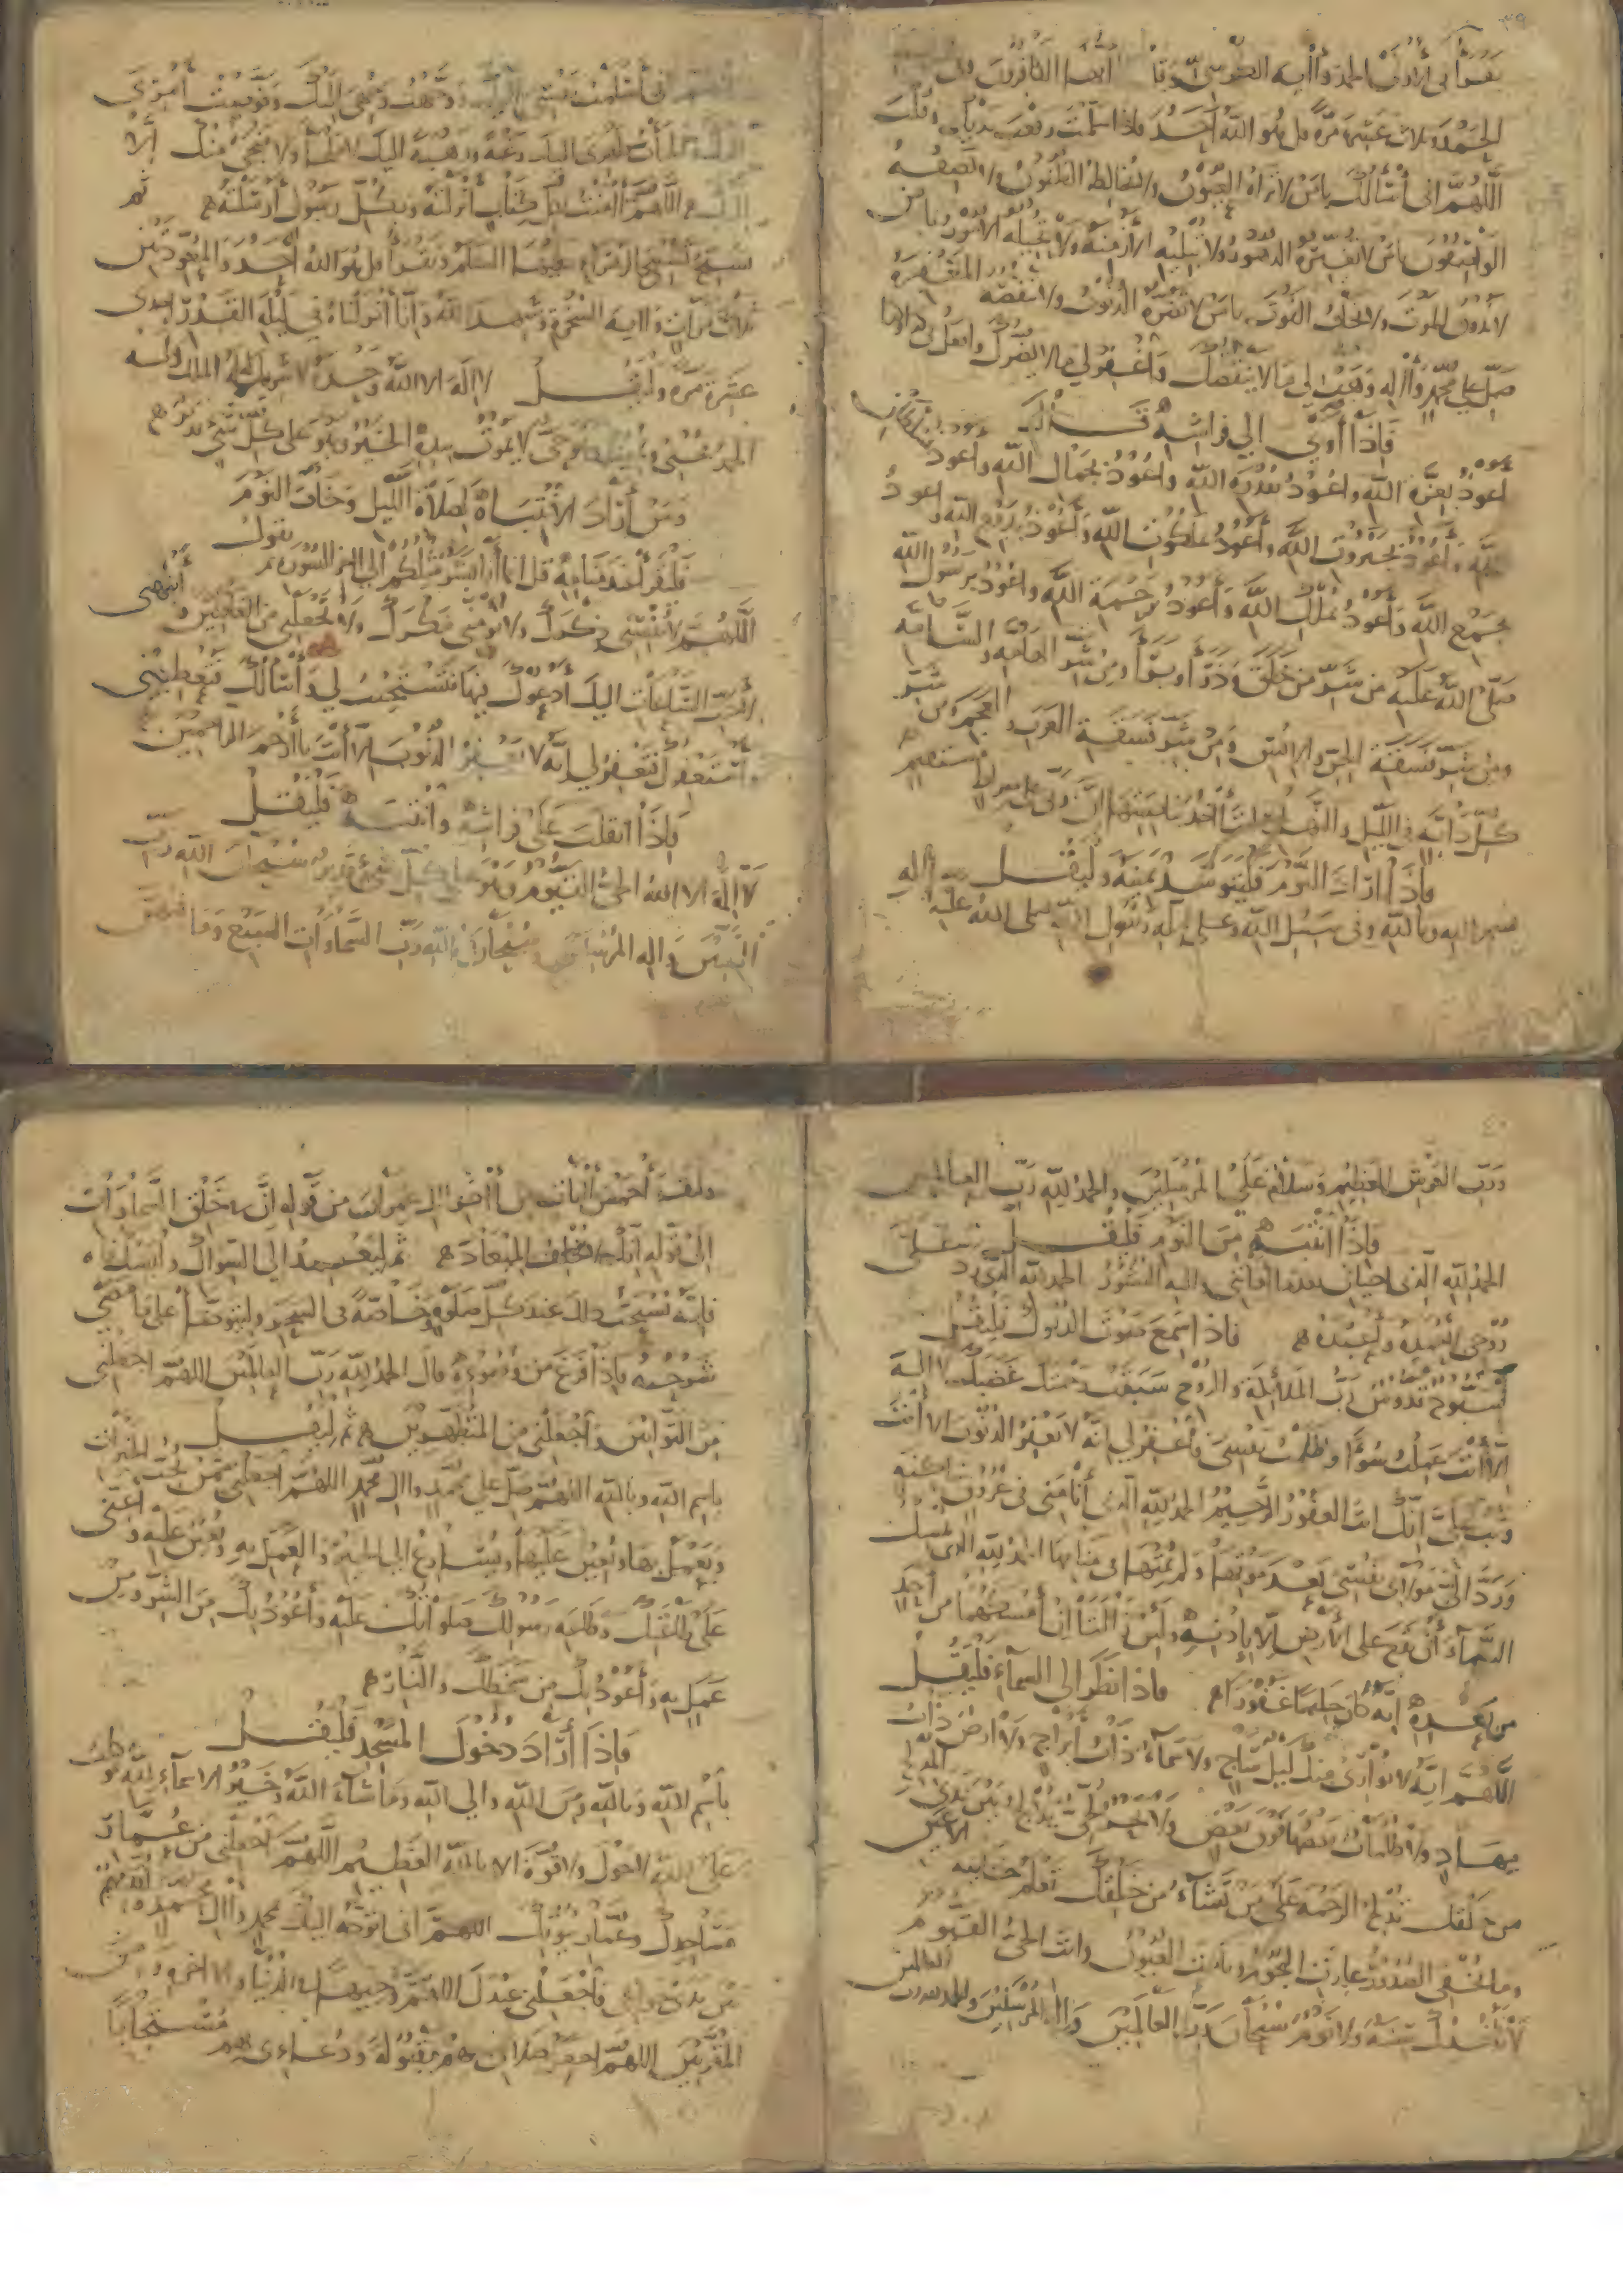 ٣٩
يقرأ في الأولى الحمد وآية الكرسي وقل يا أيها الكافرون وفي
الحمد وثلاث عشرة مرة قل هو الله أحد فإذا سلمت رفعت يديك وقلت
اللهم إني أسألك يا من لا تراه العيون ولا تخالطه الظنون ولا يصفه
الواصفون يا من لا تغيره الدهور ولا تبليه الأزمنة ولا تحيله الأمور يا من
لا يذوق الموت ولا يخاف الفوت يا من لا تضره الذنوب ولا تنقصه المغفرة
صل على محمد وآله وهب لي ما لا ينقصك واغفر لي ما لا يضرك وافعل بي كذا وكذا
فإذا أوى إلى فراشه قال
أعوذ بعزة الله وأعوذ بقدرة الله وأعوذ بجمال الله وأعوذ
الله وأعوذ بجبروت الله وأعوذ بملكوت الله وأعوذ بدفع الله وأعوذ
بجمع الله وأعوذ بملك الله وأعوذ برحمة الله وأعوذ برسول الله
صلى الله عليه من شر من خلق وذرأ وبرأ ومن شر الهامة والسامة
ومن شر فسقة الجن والإنس ومن شر فسقة العرب والعجم ومن شر
كل دابة في الليل والنهار أنت آخذ بناصيتها إن ربي على صراط مستقيم
فإذا أراد النوم فليتوسد يمينه وليقل
بسم الله وبالله وفي سبيل الله وعلى ملة رسول الله صلى الله عليه وآله
إني أسلمت نفسي إليك ووجهت وجهي إليك وفوضت أمري
إليك وألجأت ظهري إليك رغبة ورهبة إليك لا ملجأ ولا منجى منك إلا
إليك اللهم آمنت بكل كتاب أنزلته وبكل رسول أرسلته ثم
يسبح تسبيح الزهراء عليها السلام ويقرأ قل هو الله أحد والمعوذتين
ثلاث مرات وآية السخرة وشهد الله وإنا أنزلناه في ليلة القدر إحدى
عشرة مرة وليقل لا إله إلا الله وحده لا شريك له له الملك وله
الحمد يحيي ويميت وهو حي لا يموت بيده الخير وهو على كل شيء قدير
ومن أراد الانتباه لصلاة الليل وخاف النوم
فليقرأ عند منامه قل إنما أنا بشر مثلكم إلى آخر السورة ثم يقول
اللهم لا تنسني ذكرك ولا تؤمني مكرك ولا تجعلني من الغافلين وأنبهني
لأحب الساعات إليك أدعوك فيها فتستجيب لي وأسألك فتعطيني
وأستغفرك فتغفر لي إنه لا يغفر الذنوب إلا أنت يا أرحم الراحمين
فإذا انقلب على فراشه وانتبه فليقل
لا إله إلا الله الحي القيوم وهو على كل شيء قدير سبحان الله رب
النبيين وإله المرسلين سبحان الله رب السماوات السبع وما فيهن
٤٠
ورب العرش العظيم وسلام على المرسلين والحمد لله رب العالمين
فإذا انتبه من النوم فليقل
الحمد لله الذي أحياني بعد ما أماتني وإليه النشور الحمد لله الذي رد
روحي لأحمده ولأعبده فإذا سمع صوت الديوك فليقل
سبوح قدوس رب الملائكة والروح سبقت رحمتك غضبك لا إله
إلا أنت عملت سوءا وظلمت نفسي فاغفر لي إنه لا يغفر الذنوب إلا أنت
وتب علي إنك أنت الغفور الرحيم الحمد لله الذي أنامني في عروق ساكنة
ورد إلي مولاي نفسي بعد موتها ولم يمتها في منامها الحمد لله الذي يمسك
السماء أن تقع على الأرض إلا بإذنه ولئن زالتا إن أمسكهما من أحد
من بعده إنه كان حليما غفورا فإذا نظر إلى السماء فليقل
اللهم إنه لا يواري منك ليل ساج ولا سماء ذات أبراج ولا أرض ذات
مهاد ولا ظلمات بعضها فوق بعض ولا بحر لجي تدلج بين يدي المدلج
من خلقك تدلج الرحمة على من تشاء من خلقك تعلم خائنة الأعين
وما تخفي الصدور غارت النجوم ونامت العيون وأنت الحي القيوم
لا تأخذك سنة ولا نوم سبحان رب العالمين وإله المرسلين والحمد لله رب العالمين
وليقرأ خمس آيات من آخر آل عمران من قوله إن في خلق السماوات
إلى قوله إنك لا تخلف الميعاد ثم ليعمد إلى السواك وليستك
فإنه يستحب ذلك عند كل صلاة وخاصة في السحر وليتوضأ على ما مضى
شرحه فإذا فرغ من وضوئه قال الحمد لله رب العالمين اللهم اجعلني
من التوابين واجعلني من المتطهرين ثم ليقل
باسم الله وبالله اللهم صل على محمد وآل محمد اللهم اجعلني ممن يحب الخيرات
ويعمل بها ويعين عليها ويسارع إلى الخير والعمل به ويعين عليه وأعني
على طاعتك وطاعة رسولك صلواتك عليه وأعوذ بك من الشر ومن
عمل به وأعوذ بك من سخطك والنار
فإذا أراد دخول المسجد فليقل
باسم الله وبالله ومن الله وإلى الله وما شاء الله وخير الأسماء لله توكلت
على الله لا حول ولا قوة إلا بالله العظيم اللهم اجعلني من عمار
مساجدك وعمار بيوتك اللهم إني أتوجه إليك بمحمد وآل محمد
بين يدي حوائجي فاجعلني عندك اللهم وجيها في الدنيا والآخرة ومن
المقربين اللهم اجعل صلاتي بهم مقبولة ودعائي بهم مستجابا